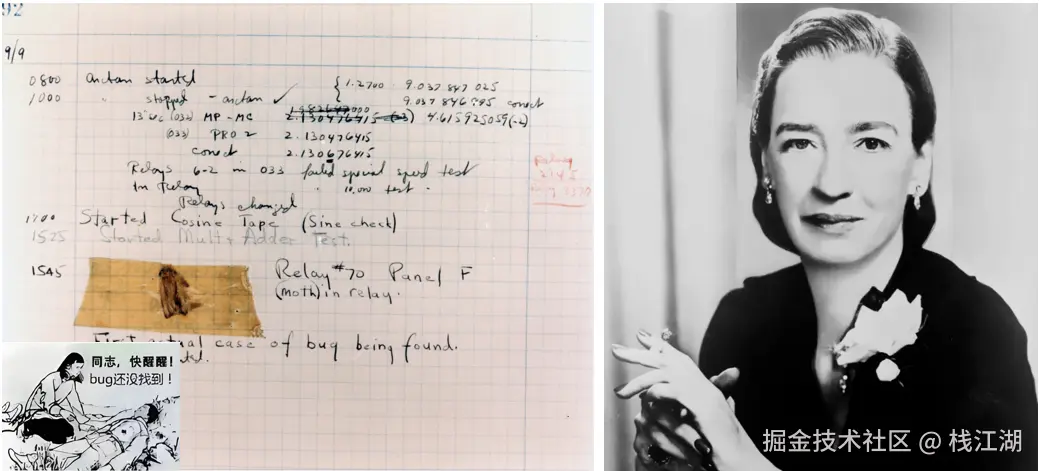 92
9/9
0800 arctan started { 1.2700 9.037 847 025
1000 " stopped - arctan ✓ 9.037 846 995 correct
13"uc (032) MP-MC 2.130476415 4.615925059(-2)
(033) PRO 2 2.130476415
correct 2.130676415
Relays 6-2 in 033 failed special speed test
in relay " 10.000 test.
Relays changed
1700 Started Cosine Tape (Sine check)
1525 Started Mult+Adder Test.
1545 Relay #70 Panel F
(moth) in relay.
First actual case of bug being found.
同志，快醒醒！
bug还没找到！
掘金技术社区 @ 栈江湖